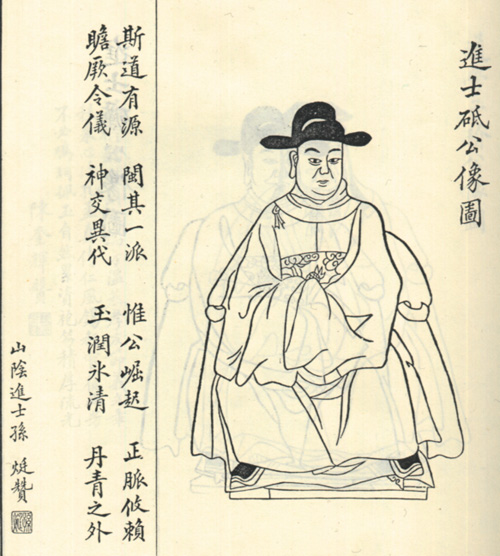 進士砥公像圖
斯道有源　閩其一派　惟公崛起　正脈攸賴
瞻厥令儀　神交異代　玉潤氷清　丹青之外
山陰進士孫　烶贊